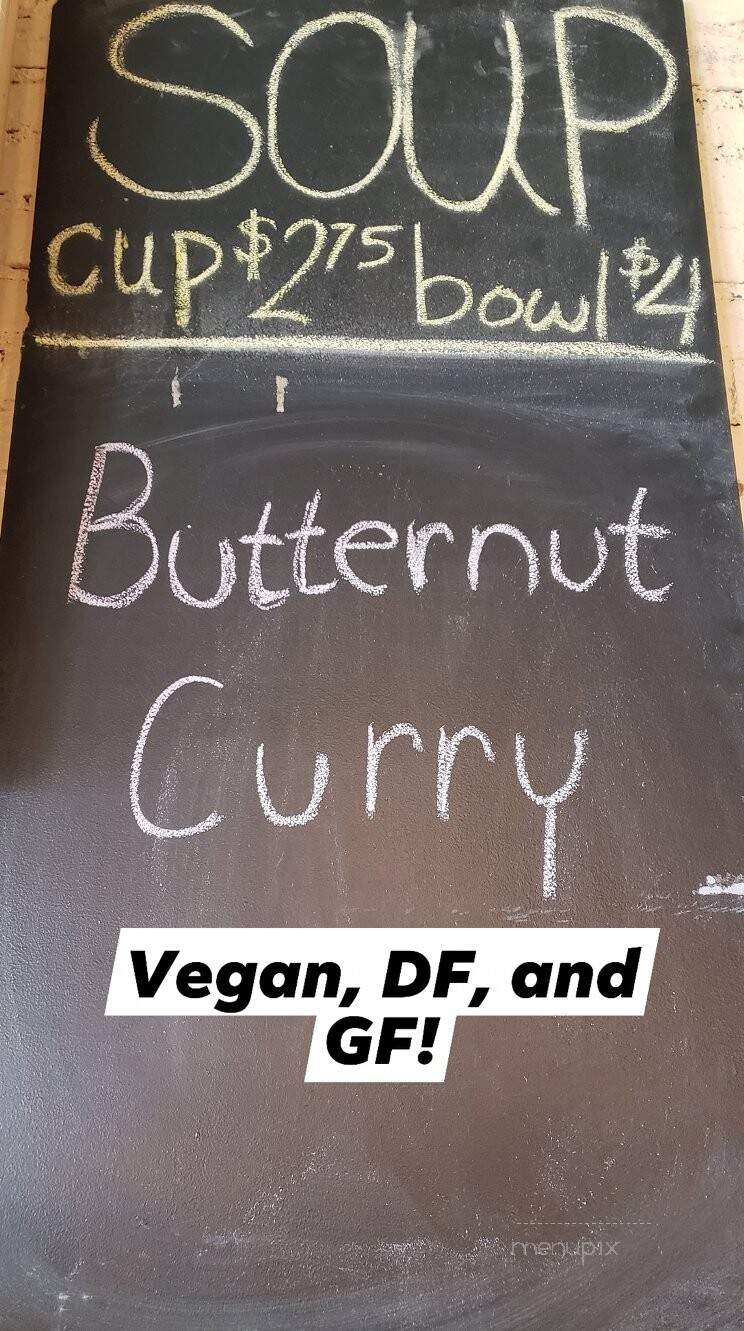 SOUP
cup $2.75 bowl $4
Butternut
Curry
Vegan, DF, and
GF!
menupix